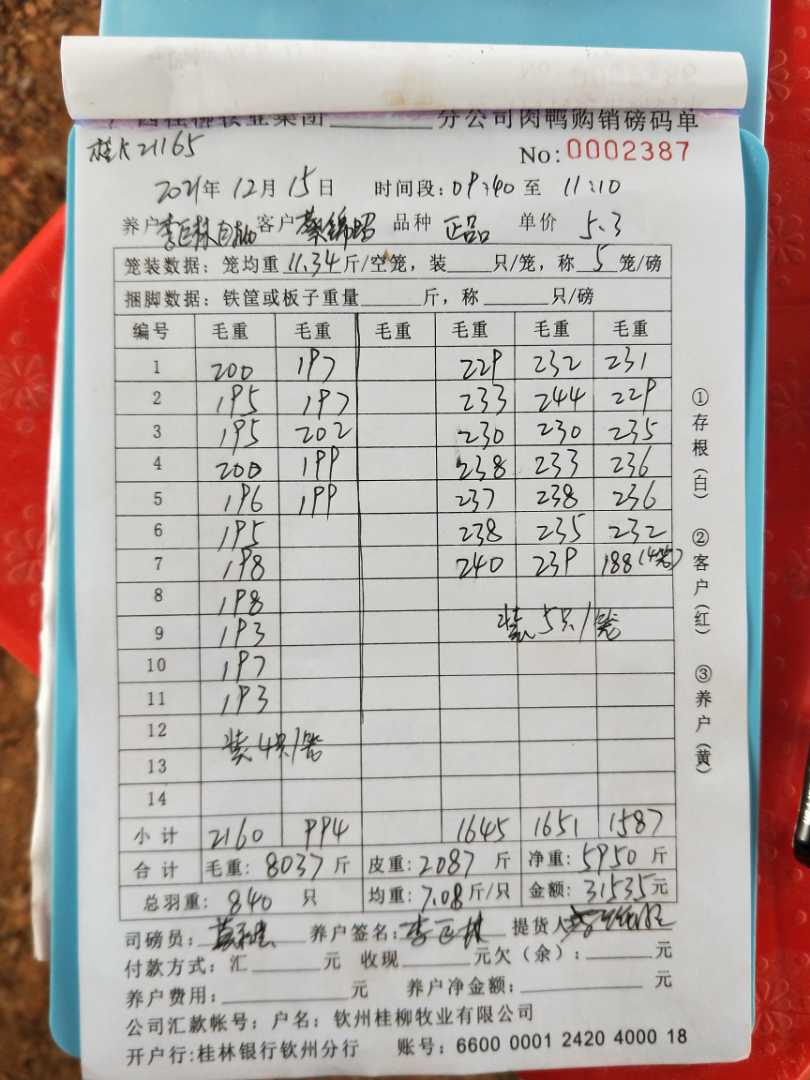 广西桂柳牧业集团________分公司肉鸭购销磅码单
桂K21165
No: 0002387
2021年 12月 15日 时间段: 09:40 至 11:10
养户 李巨林 客户 蔡锦昭 品种 正品 单价 5.3
笼装数据: 笼均重 11.34 斤/空笼, 装____只/笼, 称 5 笼/磅
捆脚数据: 铁筐或板子重量______斤, 称______只/磅
编号 毛重 毛重 毛重 毛重 毛重 毛重
1 200 197 229 232 231
2 195 197 233 244 229
3 195 202 230 230 235
4 200 199 238 233 236
5 196 199 237 238 236
6 195 238 235 232
7 198 240 239 188(4笼)
8 198
9 193 装5只/笼
10 197
11 193
12
装4只/笼
13
14
小计 2160 994 1645 1651 1587
合计 毛重: 8037 斤 皮重: 2087 斤 净重: 5950 斤
总羽重: 840 只 均重: 7.08 斤/只 金额: 31535 元
司磅员: 养户签名: 李巨林 提货人
付款方式: 汇______元 收现______元欠(余): ______元
养户费用: __________元 养户净金额: __________元
公司汇款帐号: 户名: 钦州桂柳牧业有限公司
开户行:桂林银行钦州分行 账号: 6600 0001 2420 4000 18
①存根(白) ②客户(红) ③养户(黄)